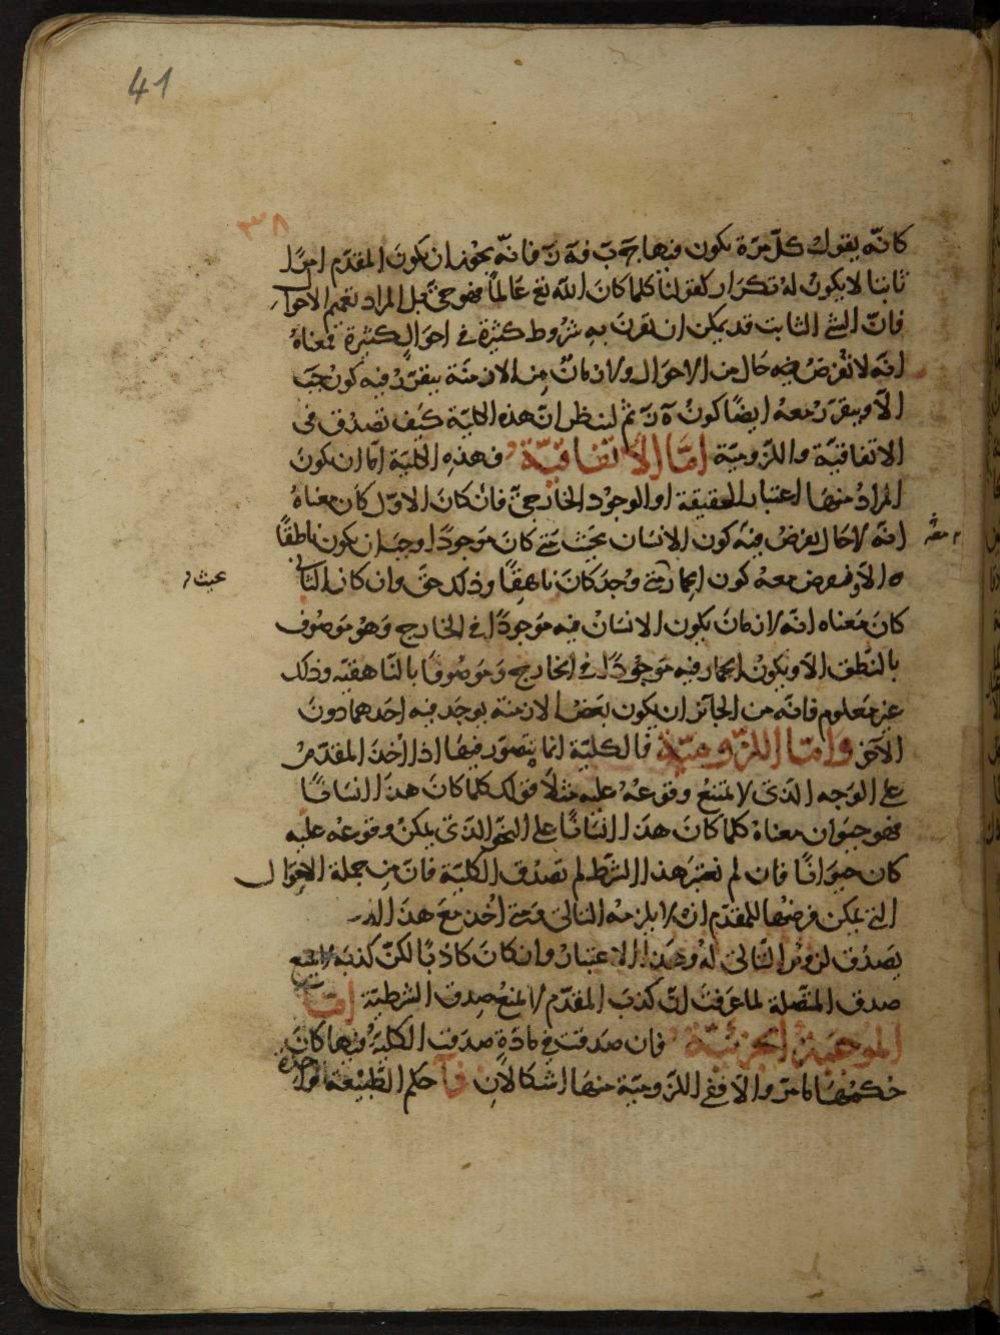 41
٣٨
كانّه يقول كلّ مرّة يكون فيها جَ بَ فهَ زَ فانّه يجوز ان يكون المقدّم امرًا
ثابتا لا يكون له تكرار كقولنا كلما كان الله تع عالماً فهو حىّ بل المراد تعميم الاحوال
فانّ الشئ الثابت قد يمكن ان تقرن به شروط كثيرة فى احوال كثيرة فمعناه
انه لا تفرض فيه حال من الاحوال ولا زمانٌ من الازمنة يتقرّر فيه كون جَ بَ
الاّ ويتقرّر معه ايضًا كون هَ زَ ثم لننظر انّ هذه الكلية كيف تصدق فى
الاتفاقيّة واللزوميّة امّا الاتّفاقيّة فهذه الكلية امّا ان يكون
المراد منها اعتبار الحقيقة او الوجود الخارجىّ فان كان الاوّل كان معناه
انه لا حال يعرض فيه كون الانسان بحيث متى كان موجودًا وجب ان يكون ناطقًا
الاّ وفرض معه كون الحمار متى وجد كان ناهقًا وذلك حق وان كان الثانى
بحيث
كان معناه انه لا زمان يكون الانسان فيه موجودًا فى الخارج وهو موصوف
بالنطق الا ويكون الحمار فيه موجودًا فى الخارج وموصوفًا بالناهقيّه وذلك
غير معلوم فانّه من الجائز ان يكون بعض الازمنة يوجد فيه احدهما دون
الآخر وامّا اللّزوميّة فالكليّة انما يتصوّر فيها اذا اُخذ المقدّم
على الوجه الّذى لا يمتنع وقوعه عليه مثلاً قولك كلما كان هذا انسانًا
فهو حيوان معناه كلما كان هذا انسانًا على النحو الّذى يمكن وقوعه عليه
كان حيوانًا فان لم نعتبر هذا الشرط لم تصدق الكليّة فانّ من جملة الاحوال
التى يمكن فرضها للمقدّم ان لا يلزمه التالى ومتى اُخذ مع هذا لم
يصدق لزوم التّالى له وهذا الاعتبار وان كان كاذبًا لكن كذبه لا يمنع
صدق المتّصلة لما عرفت انّ كذب المقدّم لا يمنع صدق الشرطيّة امّا
الموجبة الجزئيّة فان صدقت فى مادّةٍ صدقت الكليّة فيها كان
حكمها ما مرّ والاّ ففى اللزوميّة منها اشكالان آ حكم الطّبيعة